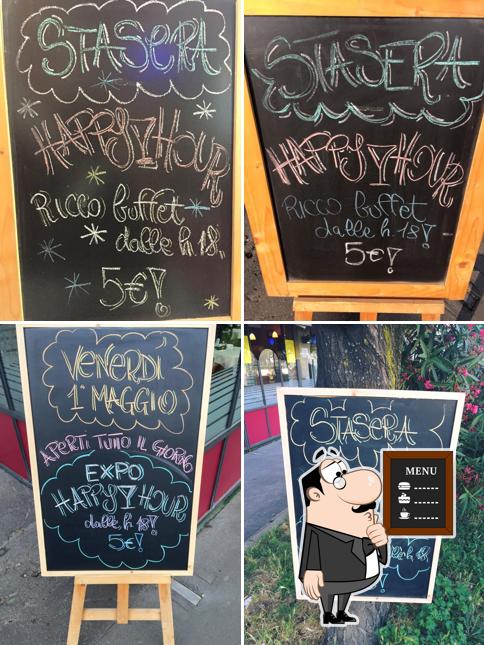 STASERA
HAPPY HOUR
RICCO buffet
dalle h 18,
5€!
STASERA
HAPPY HOUR
RICCO buffet
dalle h 18!
5€!
VENERDÌ
1° MAGGIO
APERTI TUTTO IL GIORNO
EXPO
HAPPY HOUR
dalle h 18!
5€!
STASERA
MENU